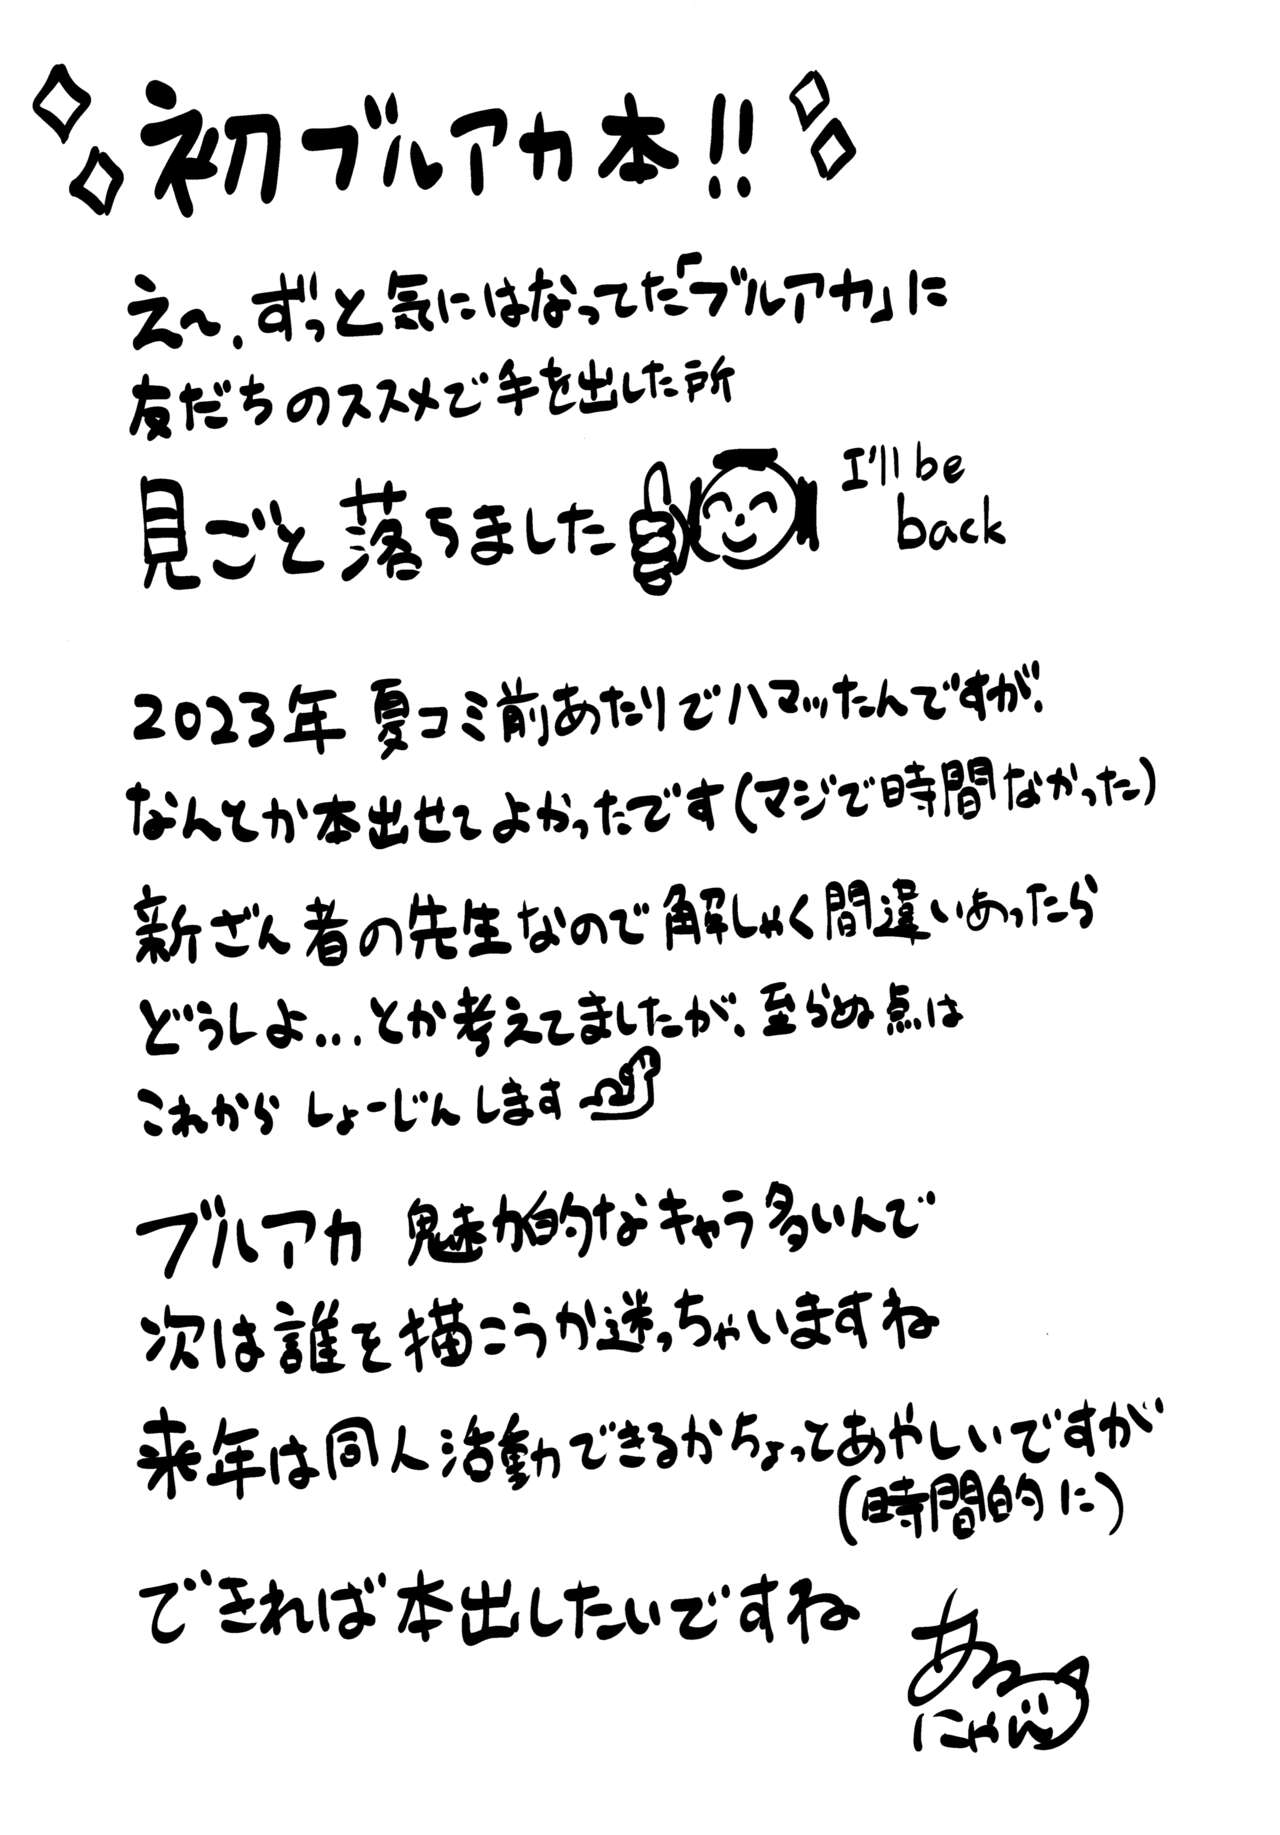 初ブルアカ本!!
え〜、ずっと気にはなってた「ブルアカ」に
友だちのススメで手を出した所
見ごと落ちました
I'll be
back
2023年 夏コミ前あたりでハマッたんですが、
なんとか本出せてよかったです(マジで時間なかった)
新ざん者の先生なので解しゃく間違いあったら
どうしよ...とか考えてましたが、至らぬ点は
これから しょーじんします
ブルアカ 魅力的なキャラ多いんで
次は誰を描こうか迷っちゃいますね
来年は同人活動できるかちょっとあやしいですが
(時間的に)
できれば本出したいですね